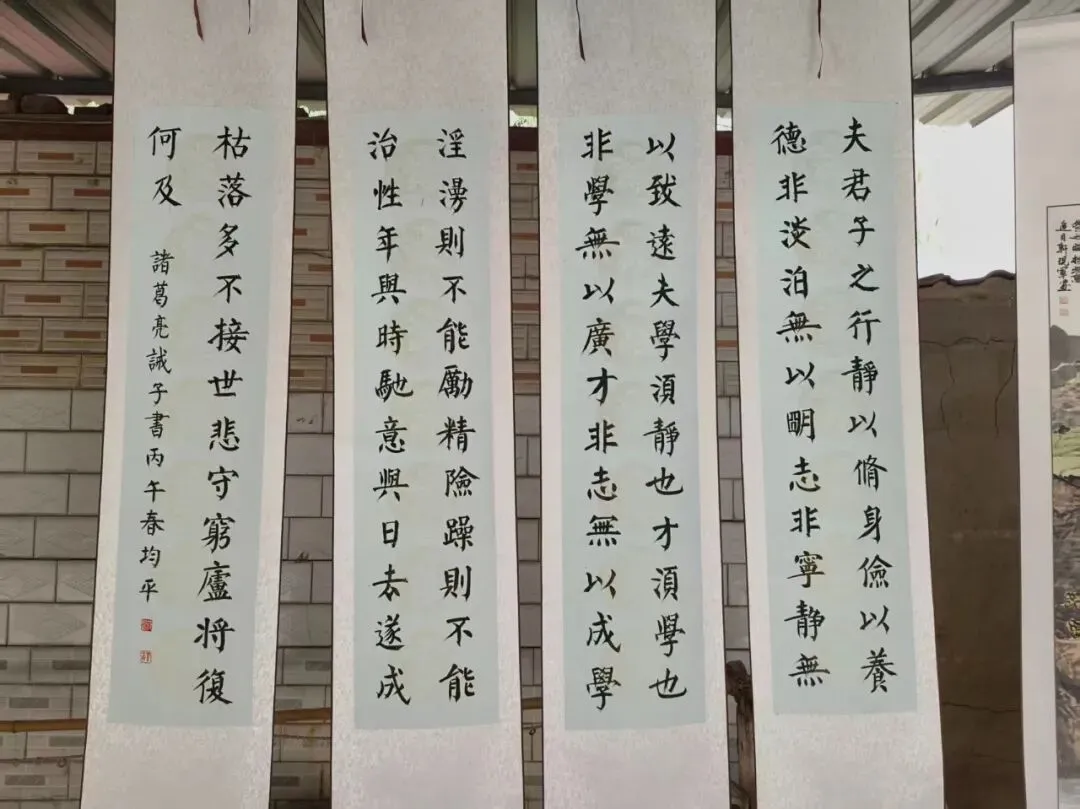 夫君子之行靜以脩身儉以養
德非淡泊無以明志非寧静無
以致遠夫學須靜也才須學也
非學無以廣才非志無以成學
淫漫則不能勵精險躁則不能
治性年與時馳意與日去遂成
枯落多不接世悲守窮廬将復
何及
諸葛亮誡子書丙午春均平